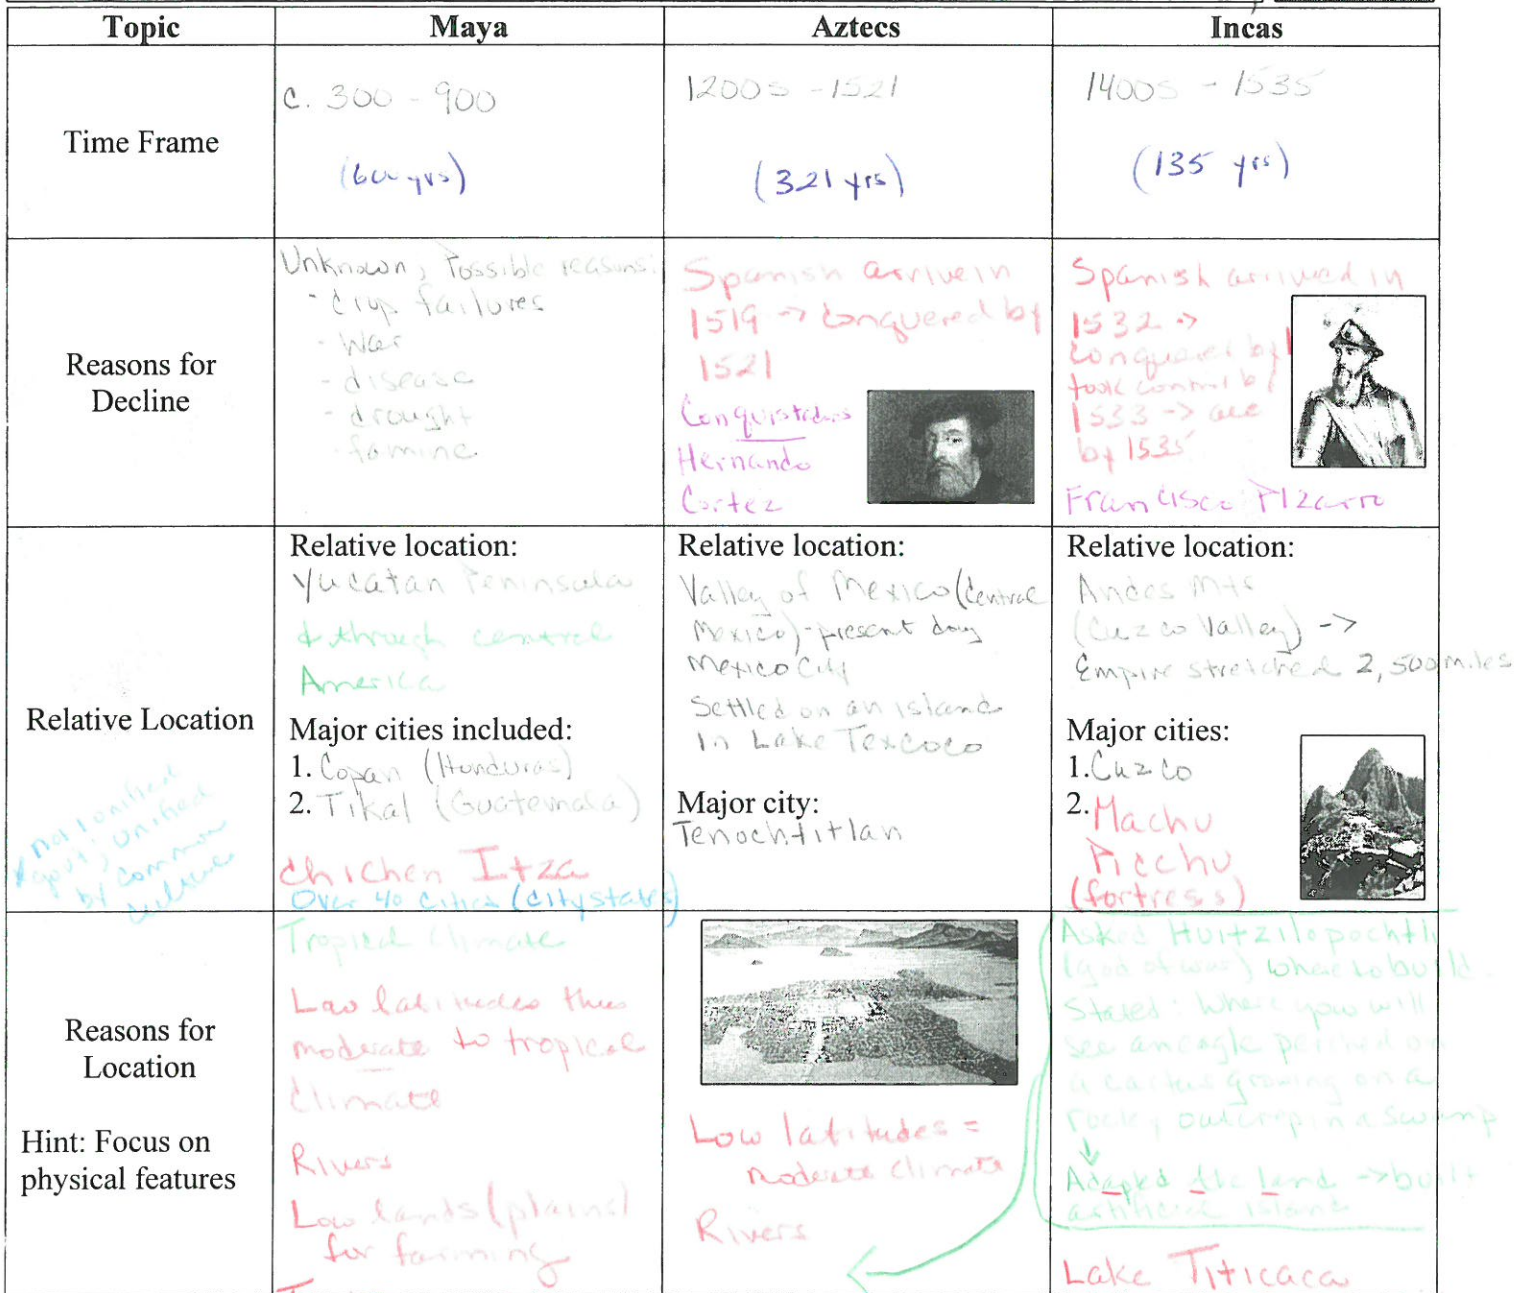 Topic Maya Aztecs Incas
Time Frame
c. 300 - 900
(600 yrs)
1200s - 1521
(321 yrs)
1400s - 1535
(135 yrs)
Reasons for
Decline
Unknown, Possible reasons:
- crop failures
- War
- disease
- drought
- famine
Spanish arrive in
1519 -> conquered by
1521
Conquistadors
Hernando
Cortez
Spanish arrived in
1532 ->
conquered by
took control by
1533 ->
by 1535
Francisco Pizarro
Relative Location
not 1 unified
govt; unified
by common
culture
Relative location:
Yucatan Peninsula
& through central
America
Major cities included:
1. Copan (Honduras)
2. Tikal (Guatemala)
Chichen Itza
Over 40 cities (city states)
Relative location:
Valley of Mexico (Central
Mexico) - present day
Mexico City
Settled on an island
in Lake Texcoco
Major city:
Tenochtitlan
Relative location:
Andes Mts
(Cuzco Valley) ->
Empire stretched 2,500 miles
Major cities:
1. Cuzco
2. Machu
Picchu
(fortress)
Reasons for
Location
Hint: Focus on
physical features
Tropical Climate
Low latitudes thus
moderate to tropical
climate
Rivers
Low lands (plains)
for farming
Low latitudes =
moderate climate
Rivers
Asked Huitzilopochtli
(god of war) where to build.
Stated: Where you will
see an eagle perched on
a cactus growing on a
rocky outcrop in a swamp
Adapted the land -> built
artificial island
Lake Titicaca